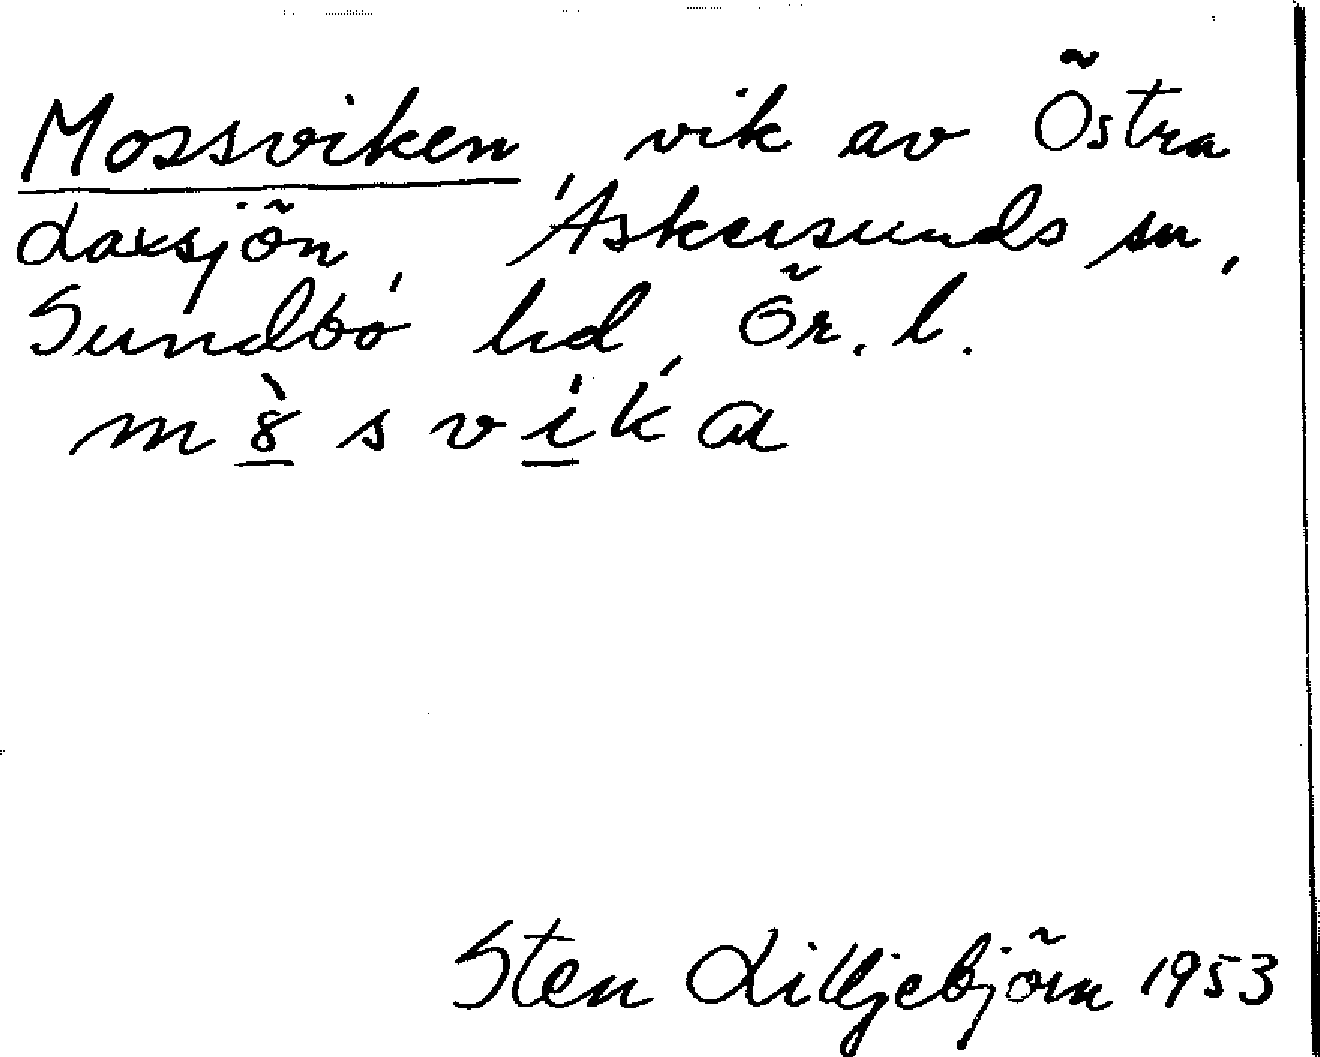 Mossviken, vik av Östra
Laxsjön, Askersunds sn,
Sundbo hd, Ör. l.
m8̀svika
Sten Lilljebjörn 1953